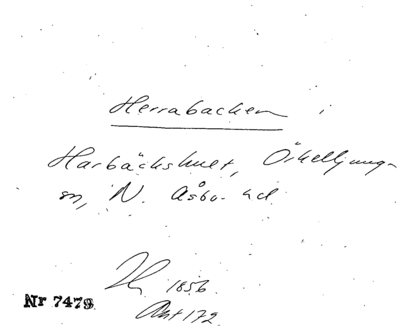 Herrabacken i
Harbäckshult, Örkelljunga
sn, N. Åsbo hd.
1856
Akt 172
Nr 7479